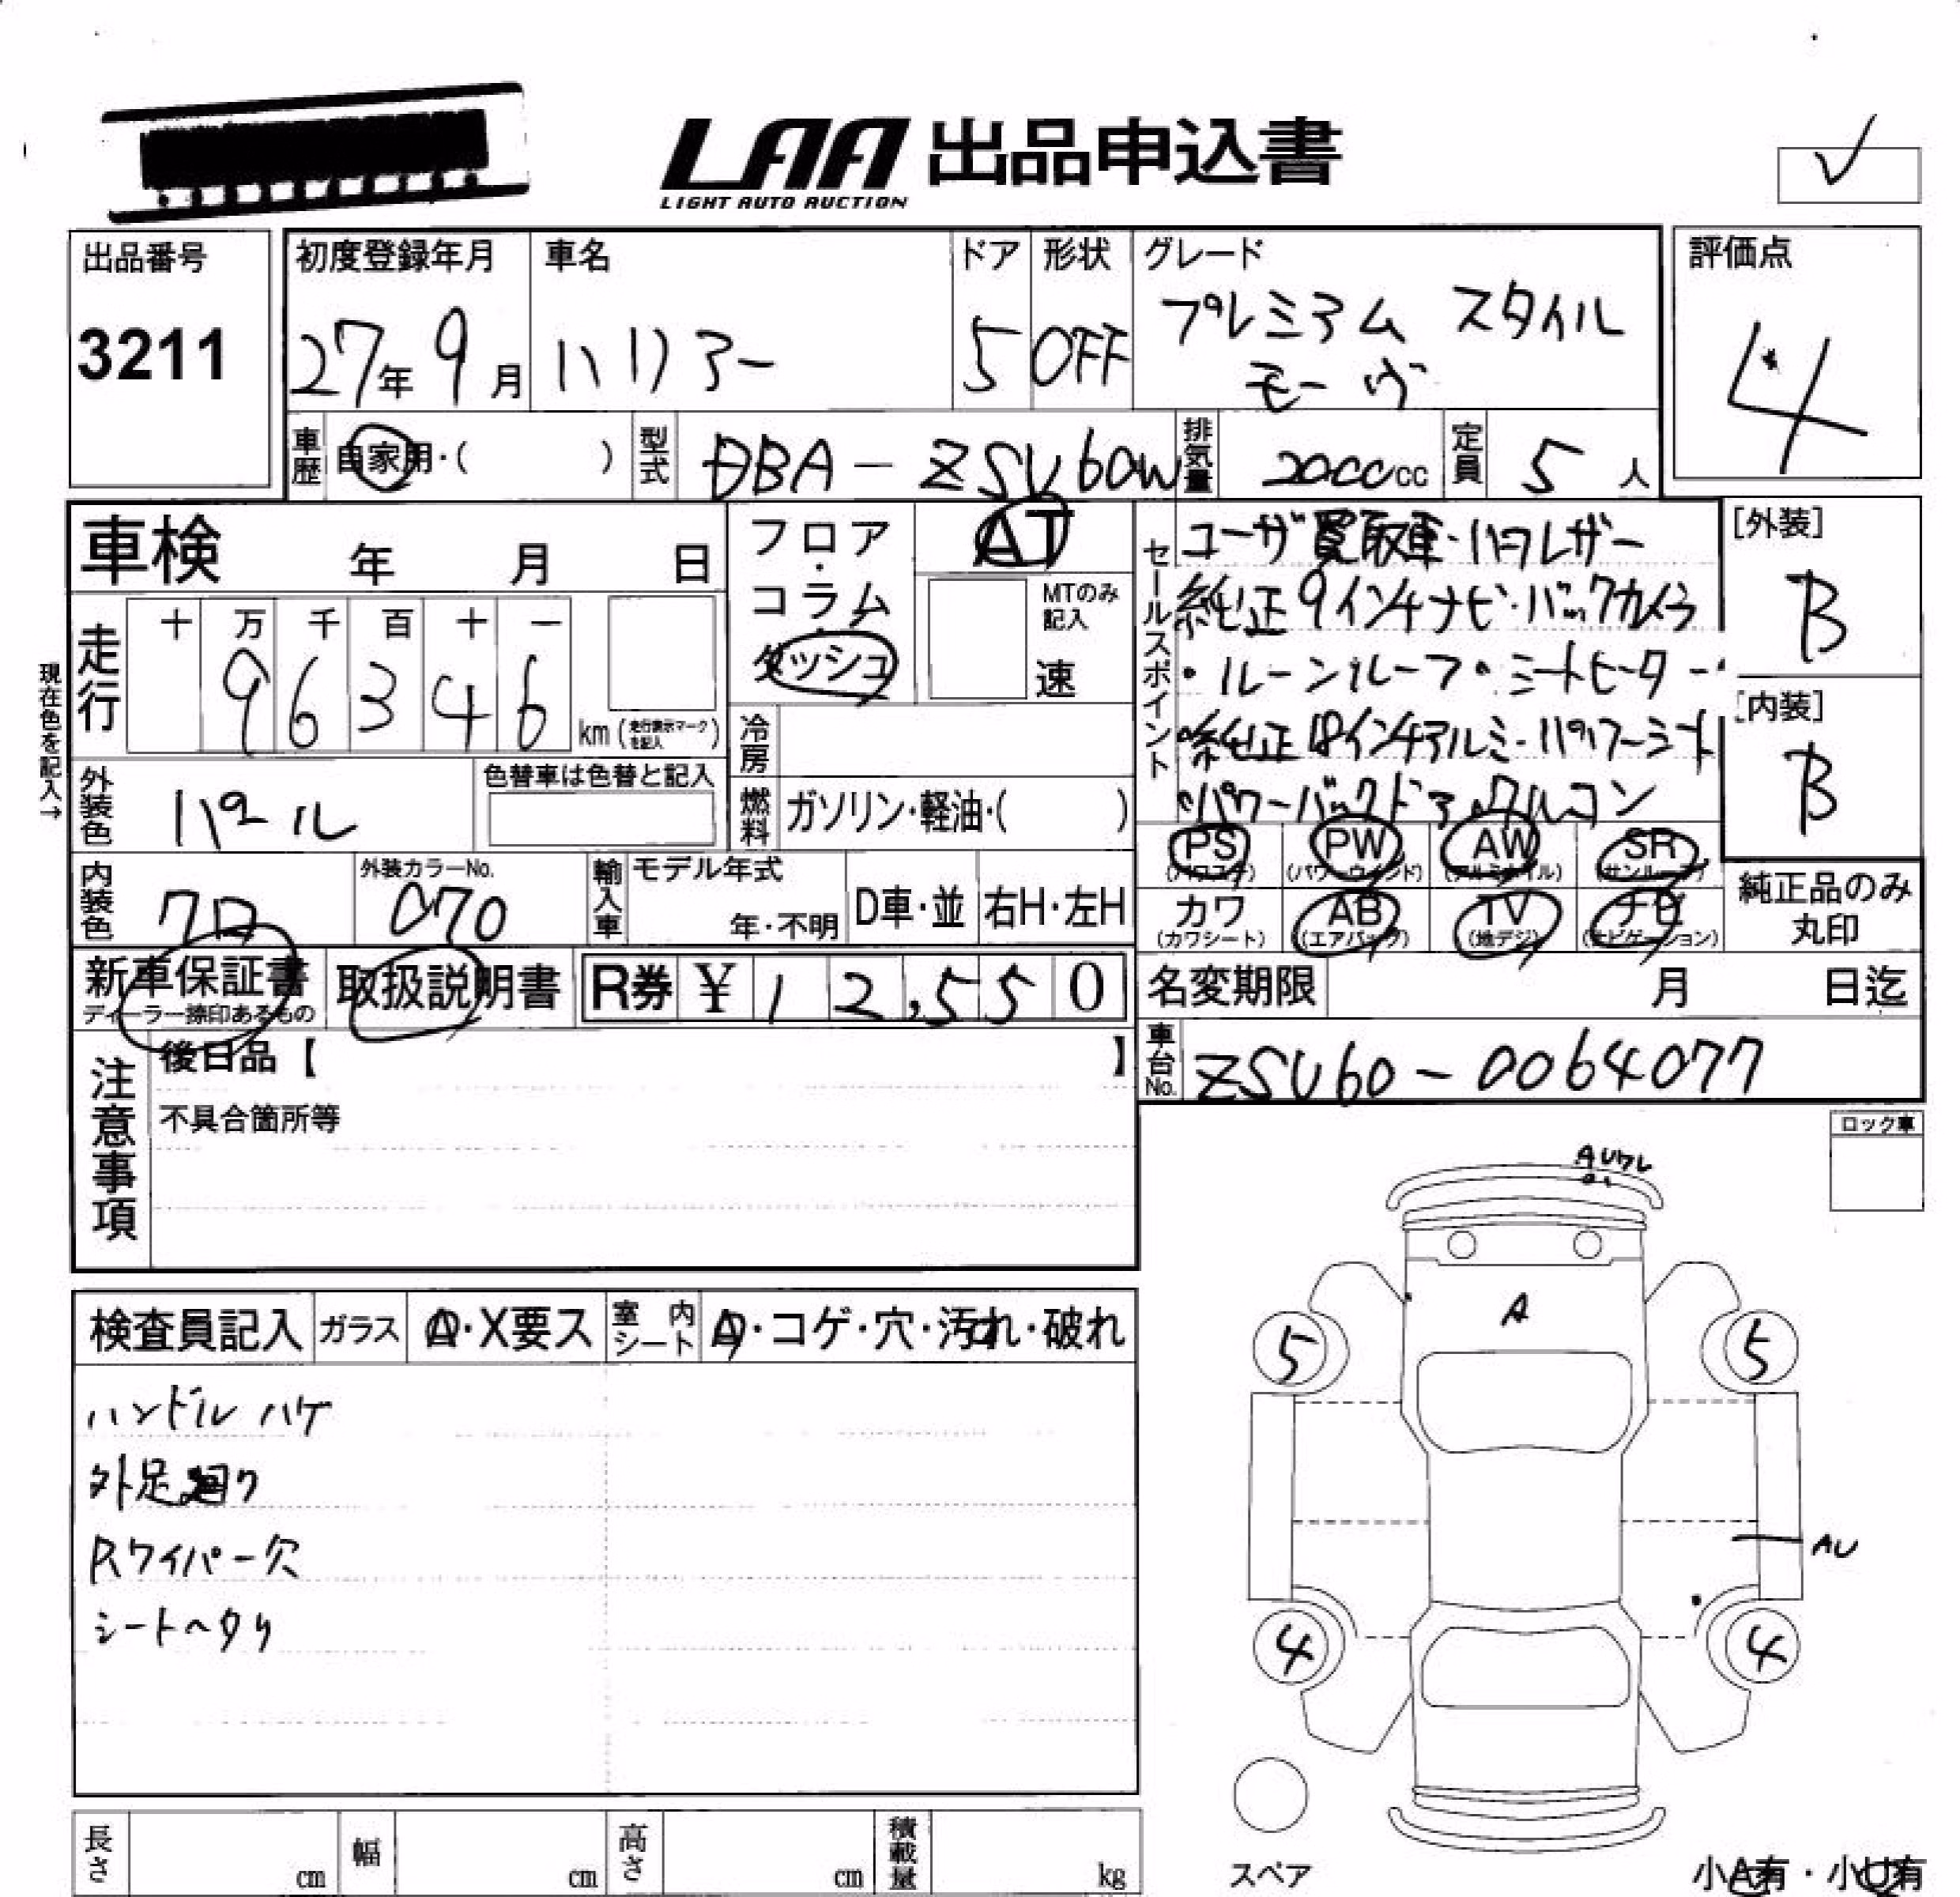 LAA 出品申込書
LIGHT AUTO AUCTION
出品番号
3211
初度登録年月
27年 9月
車名
ハリアー
ドア
5
形状
OFF
グレード
プレミアム スタイル
モーヴ
評価点
4
車歴 自家用・( )
型式 DBA-ZSU60W
排気量 2000cc
定員 5人
車検 年 月 日
現在色を記入→
走行 十 万 千 百 十 一
9 6 3 4 6 km (走行表示マークを記入)
フロア・コラム・ダッシュ
AT
MTのみ記入
速
冷房
燃料 ガソリン・軽油・( )
外装色 パール
色替車は色替と記入
内装色 クロ
外装カラーNo.
070
輸入車
モデル年式
年・不明
D車・並
右H・左H
セールスポイント
ユーザ買取車・ハーフレザー
純正9インチナビ・バックカメラ
・ルーンルーフ・シートヒーター・
・純正18インチアルミ・パワーシート
・パワーバックドア・クルコン
[外装]
B
[内装]
B
PS (パワステ)
PW (パワーウインド)
AW (アルミホイル)
SR (サンルーフ)
カワ (カワシート)
AB (エアバッグ)
TV (地デジ)
ナビ (ナビゲーション)
純正品のみ丸印
新車保証書
ディーラー捺印あるもの
取扱説明書
R券 ¥ 1 2,5 5 0
名変期限 月 日迄
車台No. ZSU60-0064077
注意事項
後日品【 】
不具合箇所等
ロック車
検査員記入
ガラス A・X要ス
室内シート A・コゲ・穴・汚れ・破れ
ハンドルハゲ
外足廻り
Rワイパー欠
シートヘタリ
AUワレ
A
5
5
AU
4
4
スペア
長さ cm
幅 cm
高さ cm
積載量 kg
小A有・小U有